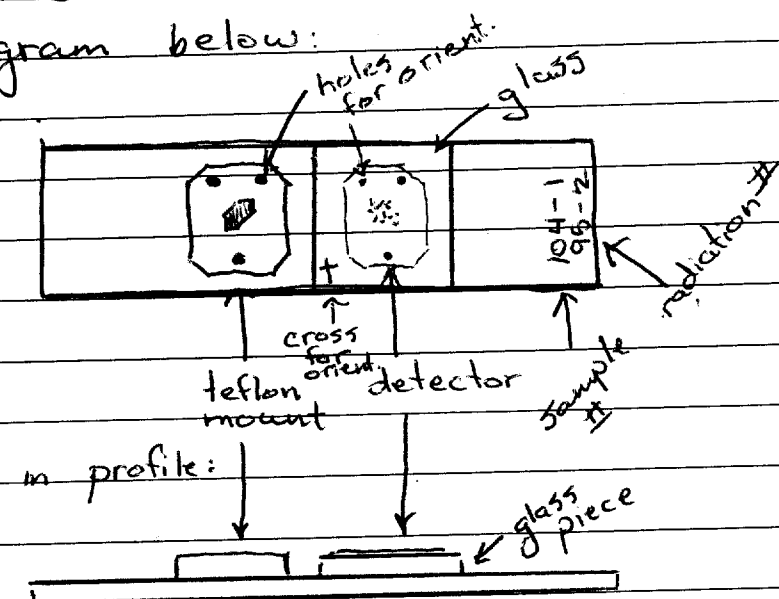 gram below:
holes
for orient.
glass
104-1
98-2
radiation #
+
cross
for
orient.
teflon
mount
detector
sample
#
in profile:
glass
piece